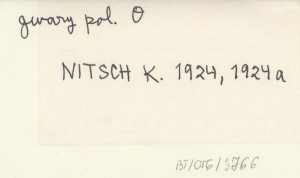 gwary pol. O
NITSCH K. 1924, 1924a
BT/OTG/3766